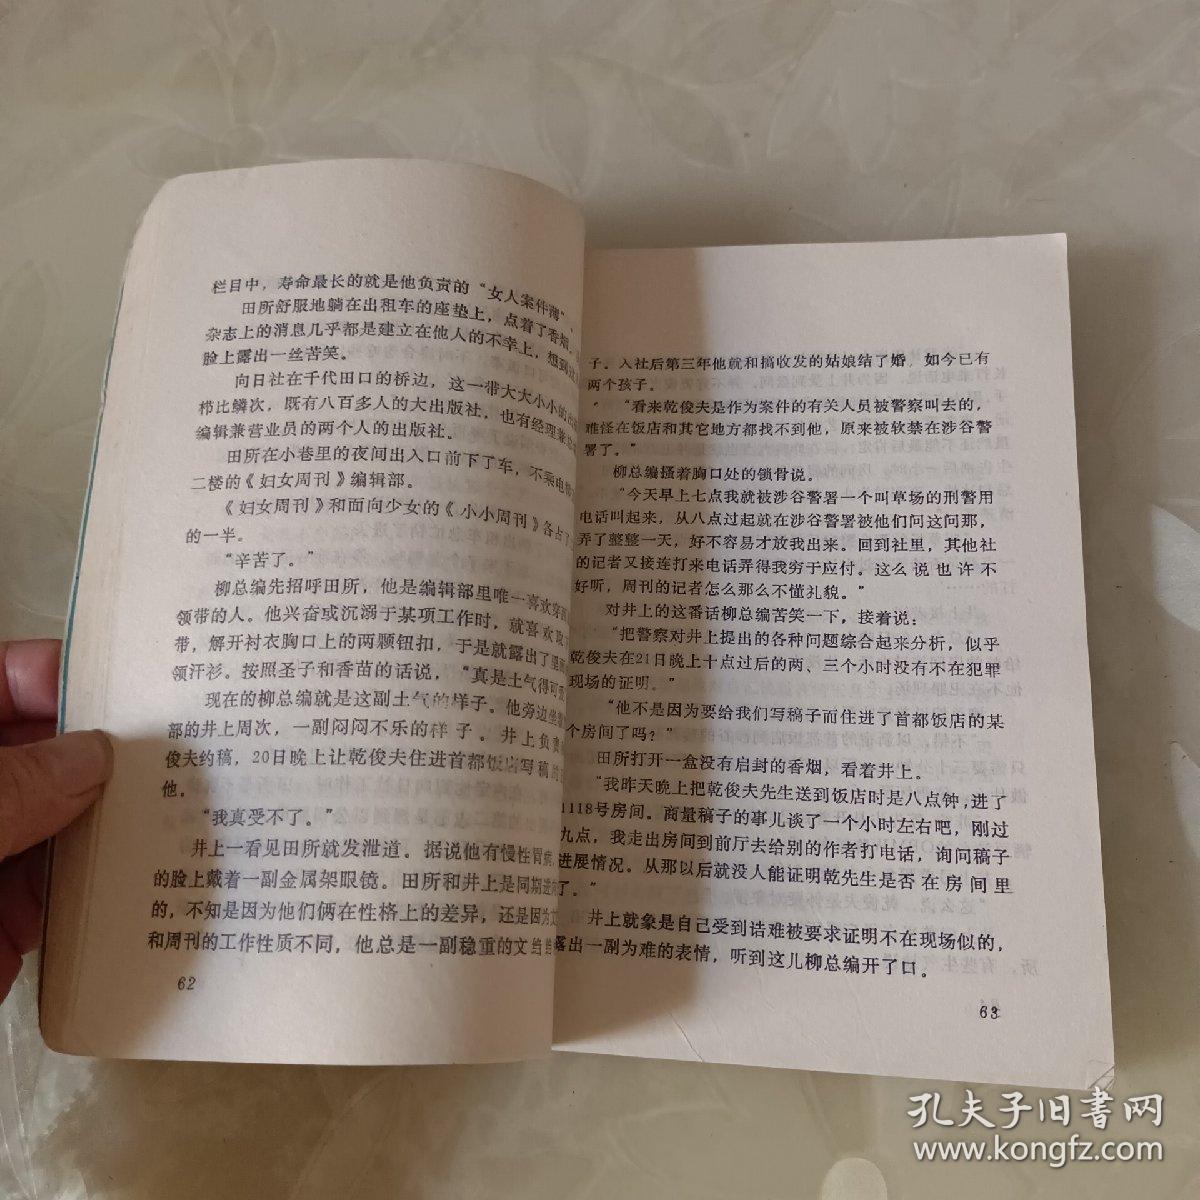 栏目中，寿命最长的就是他负责的“女人案件薄”，
田所舒服地躺在出租车的座垫上，点着了香烟。
杂志上的消息几乎都是建立在他人的不幸上，想到这
脸上露出一丝苦笑。
向日社在千代田口的桥边，这一带大大小小的
栉比鳞次，既有八百多人的大出版社，也有经理兼
编辑兼营业员的两个人的出版社。
田所在小巷里的夜间出入口前下了车，不乘电梯
二楼的《妇女周刊》编辑部。
《妇女周刊》和面向少女的《小小周刊》各占了
的一半。
“辛苦了。”
柳总编先招呼田所，他是编辑部里唯一喜欢穿
领带的人。他兴奋或沉溺于某项工作时，就喜欢
带，解开衬衣胸口上的两颗钮扣，于是就露出了里
领汗衫。按照圣子和香苗的话说，“真是土气得可
现在的柳总编就是这副土气的样子。他旁边坐
部的井上周次，一副闷闷不乐的样子。井上负责
俊夫约稿，20日晚上让乾俊夫住进首都饭店写稿的
他。
“我真受不了。”
井上一看见田所就发泄道。据说他有慢性胃病，
的脸上戴着一副金属架眼镜。田所和井上是同期进
的，不知是因为他们俩在性格上的差异，还是因为文
和周刊的工作性质不同，他总是一副稳重的文绉绉
62
子。入社后第三年他就和搞收发的姑娘结了婚，如今已有
两个孩子。
“看来乾俊夫是作为案件的有关人员被警察叫去的，
难怪在饭店和其它地方都找不到他，原来被软禁在涉谷警
署了。”
柳总编搔着胸口处的锁骨说。
“今天早上七点我就被涉谷警署一个叫草场的刑警用
电话叫起来，从八点过起就在涉谷警署被他们问这问那，
弄了整整一天，好不容易才放我出来。回到社里，其他社
的记者又接连打来电话弄得我穷于应付。这么说也许不
好听，周刊的记者怎么那么不懂礼貌。”
对井上的这番话柳总编苦笑一下，接着说：
“把警察对井上提出的各种问题综合起来分析，似乎
乾俊夫在21日晚上十点过后的两、三个小时没有不在犯罪
现场的证明。”
“他不是因为要给我们写稿子而住进了首都饭店的某
个房间了吗？”
田所打开一盒没有启封的香烟，看着井上。
“我昨天晚上把乾俊夫先生送到饭店时是八点钟，进了
1118号房间。商量稿子的事儿谈了一个小时左右吧，刚过
九点，我走出房间到前厅去给别的作者打电话，询问稿子
进展情况。从那以后就没人能证明乾先生是否在房间里
了。”
井上就象是自己受到诘难被要求证明不在现场似的，
露出一副为难的表情，听到这儿柳总编开了口。
63
孔夫子旧书网
www.kongfz.com